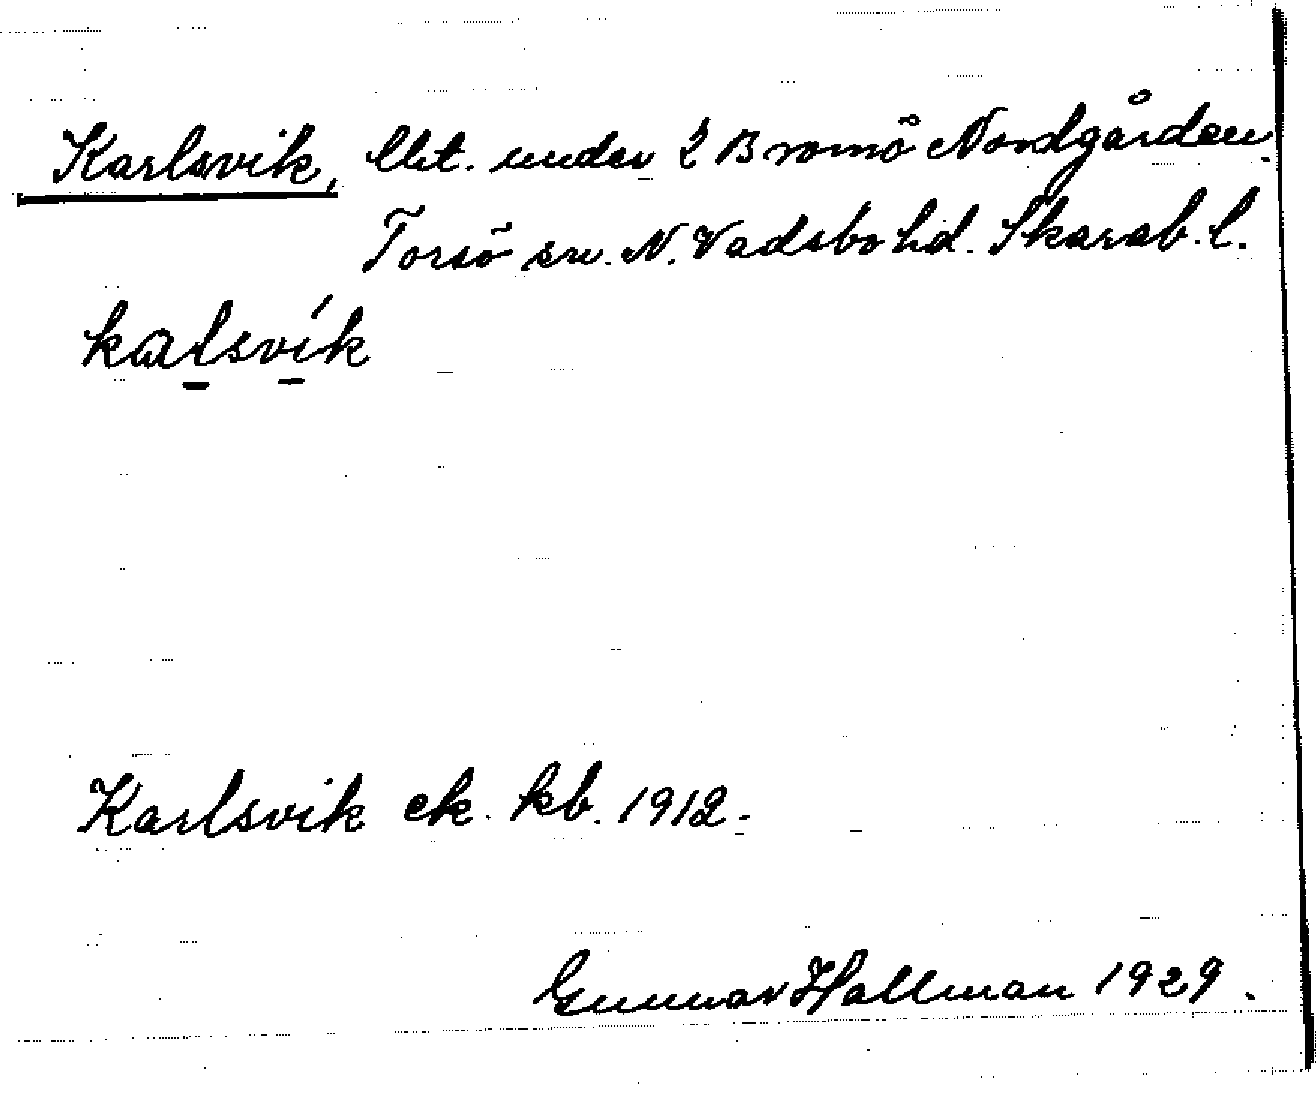 Karlsvik, lht. under 2 Bromö Nordgården.
Torsö sn. N. Vadsbo hd. Skarab. l.
kalsvík
Karlsvik ek. kb. 1912.
Gunnar Hallman 1929.